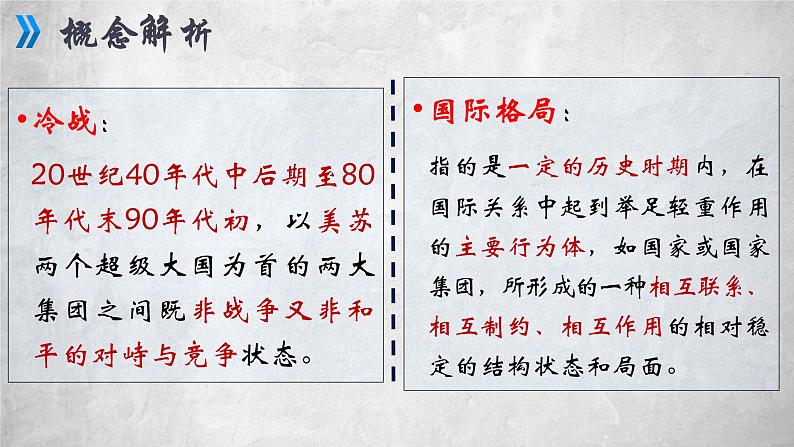 概念解析
•冷战：
20世纪40年代中后期至80
年代末90年代初，以美苏
两个超级大国为首的两大
集团之间既非战争又非和
平的对峙与竞争状态。
•国际格局：
指的是一定的历史时期内，在
国际关系中起到举足轻重作用
的主要行为体，如国家或国家
集团，所形成的一种相互联系、
相互制约、相互作用的相对稳
定的结构状态和局面。